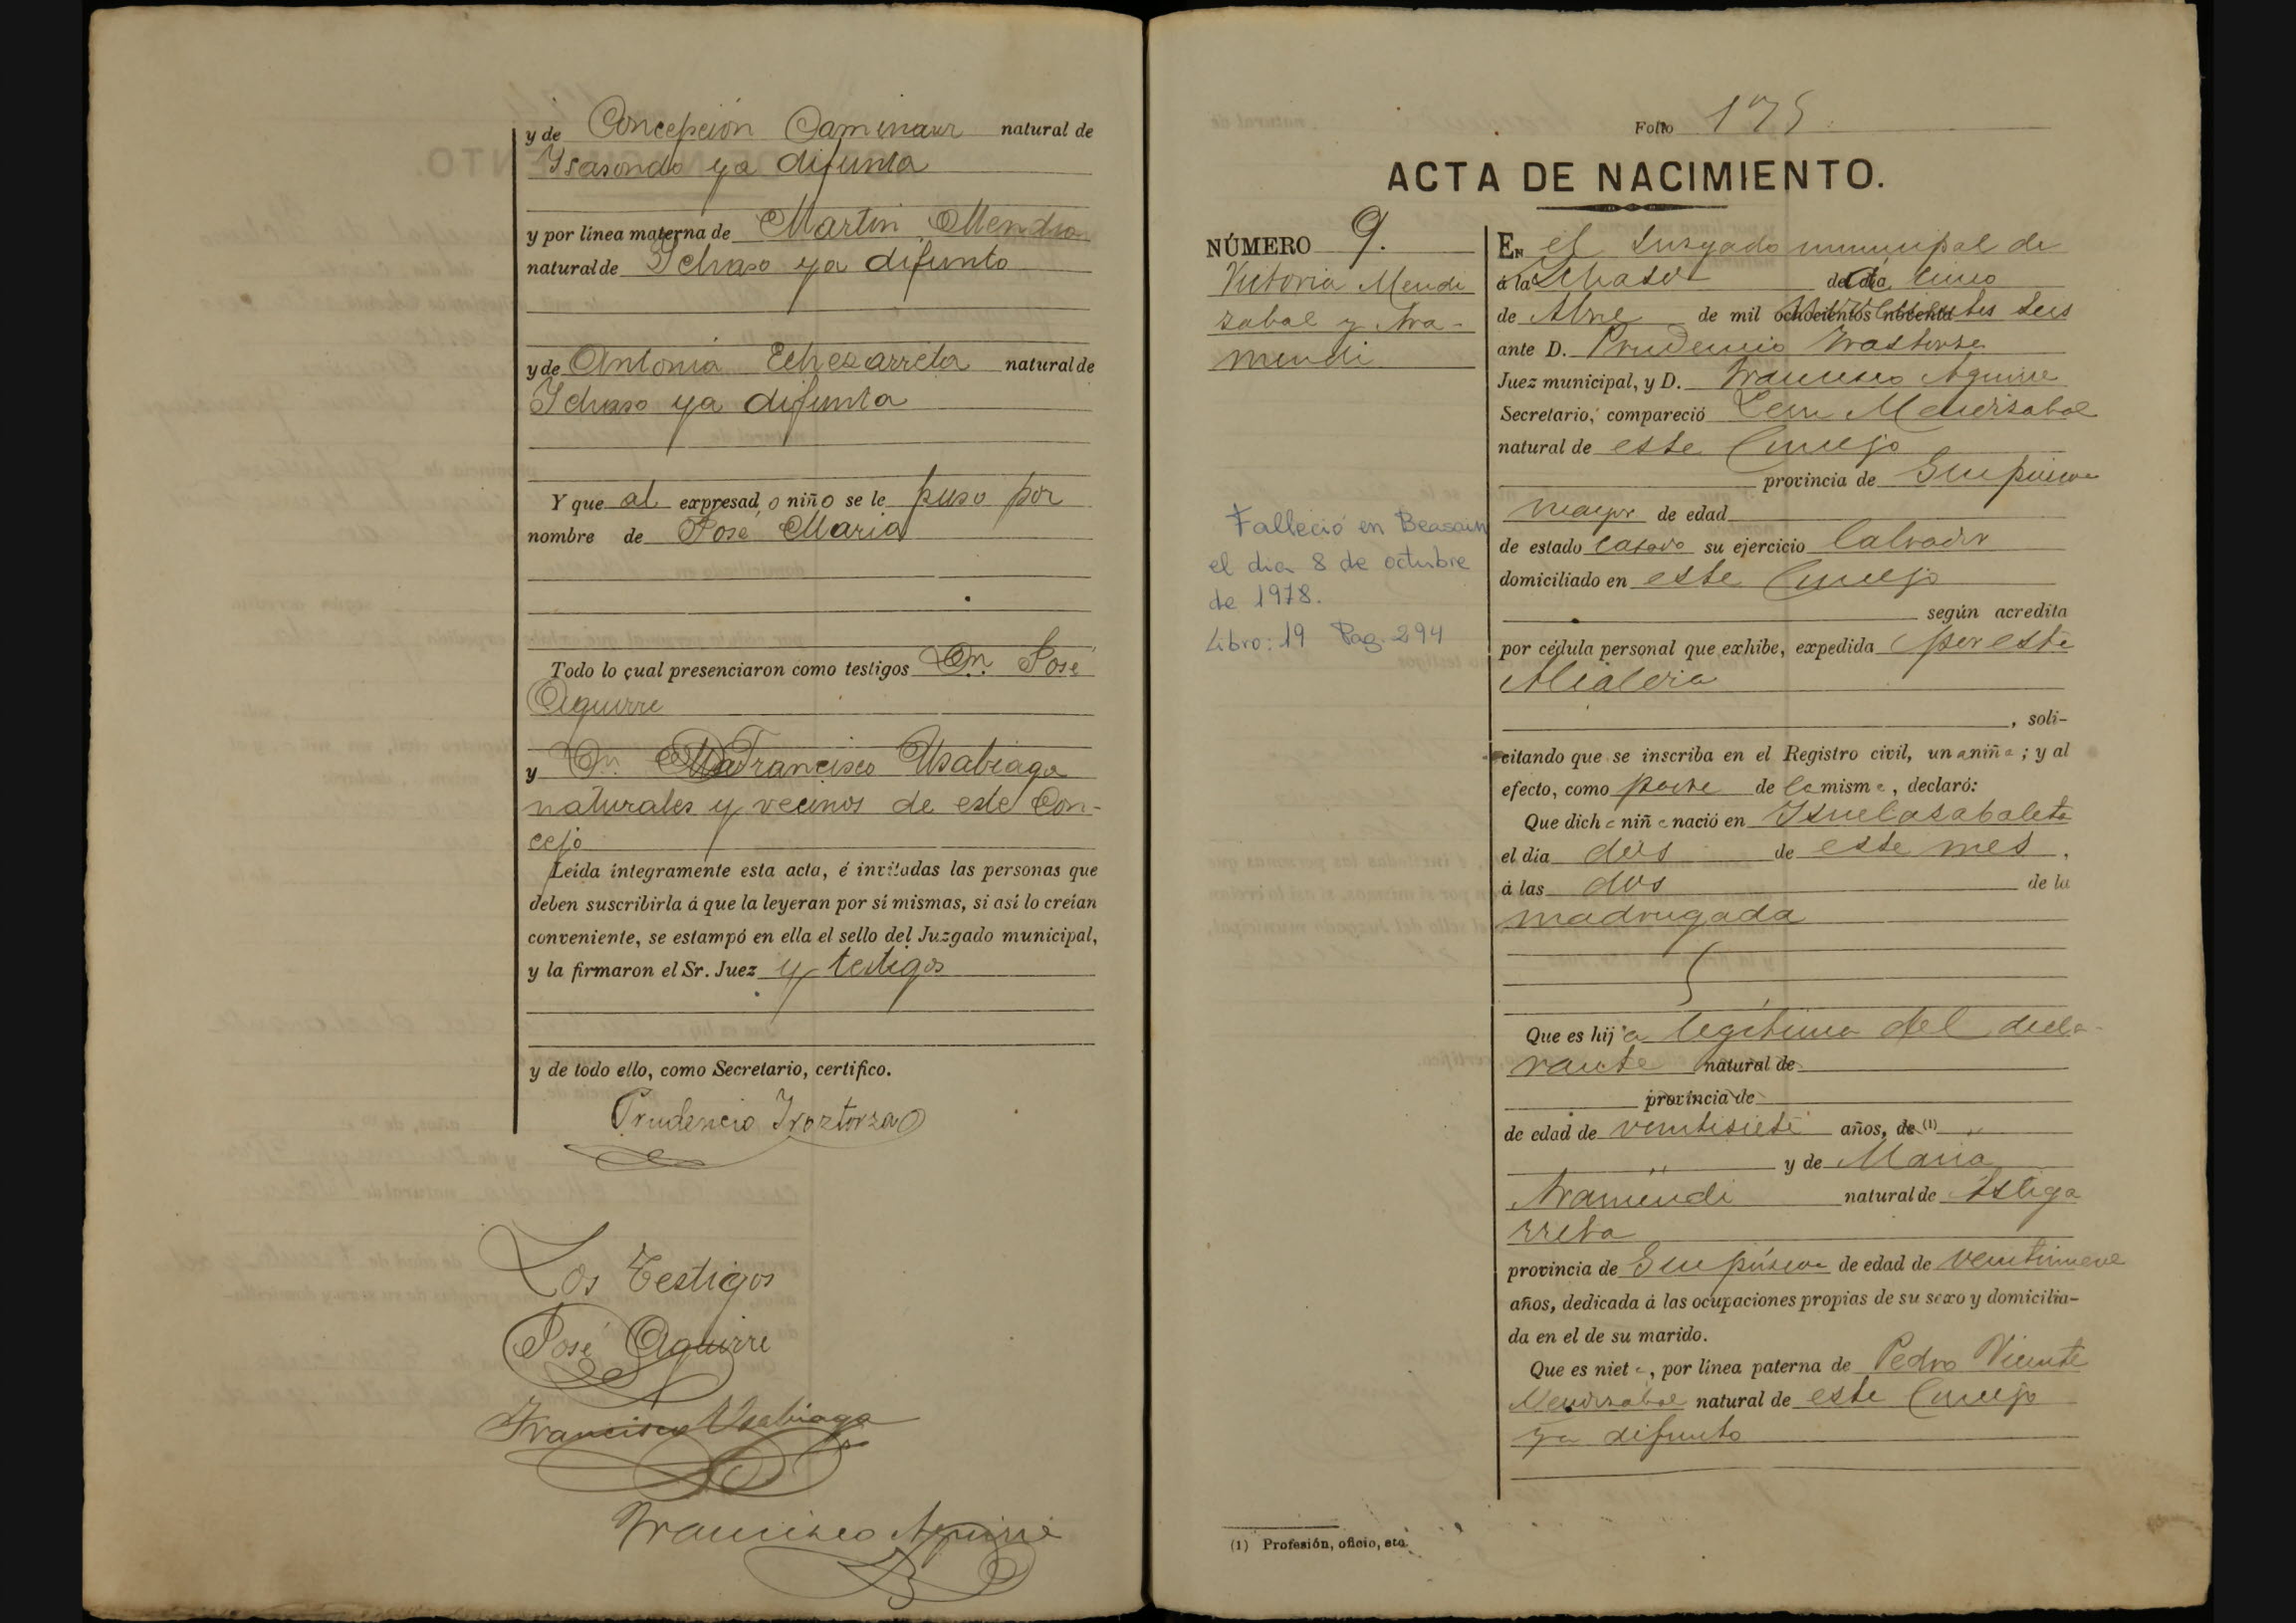 y de Concepción Caminaur natural de
Ysasondo ya difunta
y por línea materna de Martin Mendia
natural de Ichaso ya difunto
y de Antonia Echezarreta natural de
Ichaso ya difunta
Y que al expresado niño se le puso por
nombre de José Maria
Todo lo cual presenciaron como testigos Dn. José
Aguirre
y Dn. Francisco Usabiaga
naturales y vecinos de este Con-
cejo
Leída íntegramente esta acta, é invitadas las personas que
deben suscribirla á que la leyeran por sí mismas, si así lo creían
conveniente, se estampó en ella el sello del Juzgado municipal,
y la firmaron el Sr. Juez y testigos
y de todo ello, como Secretario, certifico.
Prudencio Yraztorza
Los Testigos
José Aguirre
Francisco Usabiaga
Francisco Aguirre
Folio 175
ACTA DE NACIMIENTO.
NÚMERO 9.
Victoria Mendi
zabal y Ara-
mendi
Falleció en Beasain
el dia 8 de octubre
de 1978.
Libro: 19 Pag. 294
En el Juzgado municipal de
á la Ichaso del dia cinco
de Abril de mil ochocientos noventa seis
ante D. Prudencio Yrastorza
Juez municipal, y D. Francisco Aguirre
Secretario, compareció Mendizabal
natural de este Concejo
provincia de Guipúzcoa
mayor de edad
de estado casado su ejercicio labrador
domiciliado en este Concejo
según acredita
por cédula personal que exhibe, expedida por esta
Alcaldia
, soli-
citando que se inscriba en el Registro civil, una niña; y al
efecto, como padre de la misma, declaró:
Que dicha niña nació en
el día dos de este mes,
á las dos de la
madrugada
Que es hija legitima del decla-
rante natural de
provincia de
de edad de veintisiete años, de (1) "
" y de Maria
Aramendi natural de Astiga
rreta
provincia de Guipúzcoa de edad de veintinueve
años, dedicada á las ocupaciones propias de su sexo y domicilia-
da en el de su marido.
Que es nieta, por línea paterna de Pedro Vicente
Mendizabal natural de este Concejo
ya difunto
(1) Profesión, oficio, etc.